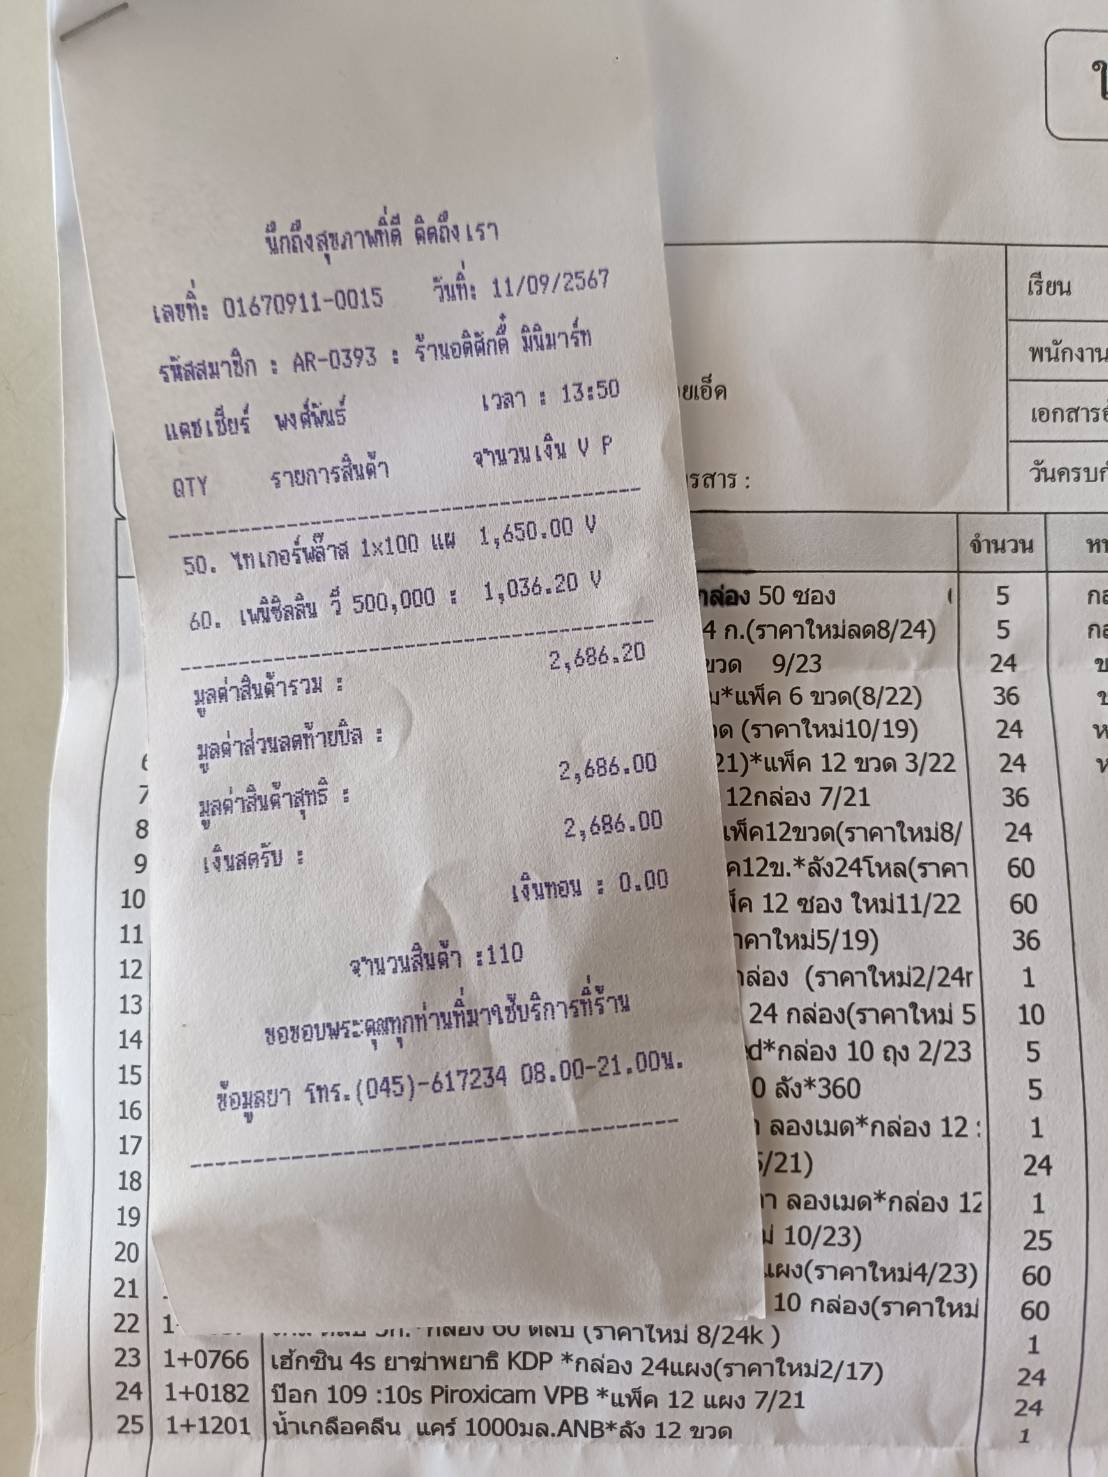 นึกถึงสุขภาพที่ดี คิดถึงเรา
เลขที่: 01670911-0015 วันที่: 11/09/2567
รหัสสมาชิก : AR-0393 : ร้านอดิศักดิ์ มินิมาร์ท
แคชเชียร์ พงศ์พันธ์ เวลา : 13:50
QTY รายการสินค้า จำนวนเงิน V P
50. ไทเกอร์พล๊าส 1x100 แผ 1,650.00 V
60. เพนิซิลลิน วี 500,000 : 1,036.20 V
มูลค่าสินค้ารวม : 2,686.20
มูลค่าส่วนลดท้ายบิล :
มูลค่าสินค้าสุทธิ : 2,686.00
เงินสดรับ : 2,686.00
เงินทอน : 0.00
จำนวนสินค้า :110
ขอขอบพระคุณทุกท่านที่มาใช้บริการที่ร้าน
ข้อมูลยา โทร.(045)-617234 08.00-21.00น.
เรียน
พนักงาน
ยเอ็ด
เอกสาร
รสาร :
วันครบก
จำนวน
กล่อง 50 ซอง 5
4 ก.(ราคาใหม่ลด8/24) 5
ขวด 9/23 24
*แพ็ค 6 ขวด(8/22) 36
(ราคาใหม่10/19) 24
6 21)*แพ็ค 12 ขวด 3/22 24
7 12กล่อง 7/21 36
8 แพ็ค12ขวด(ราคาใหม่8/ 24
9 ค12ข.*ลัง24โหล(ราคา 60
10 12 ซอง ใหม่11/22 60
11 ราคาใหม่5/19) 36
12 กล่อง (ราคาใหม่2/24r 1
13 24 กล่อง(ราคาใหม่ 5 10
14 d*กล่อง 10 ถุง 2/23 5
15 0 ลัง*360 5
16 ลองเมด*กล่อง 12 : 1
17 /21) 24
18 ลองเมด*กล่อง 12 1
19 10/23) 25
20 แผง(ราคาใหม่4/23) 60
21 10 กล่อง(ราคาใหม่ 60
22 60 ตลับ (ราคาใหม่ 8/24k ) 1
23 1+0766 เฮ้กซิน 4s ยาฆ่าพยาธิ KDP *กล่อง 24แผง(ราคาใหม่2/17) 24
24 1+0182 ป๊อก 109 :10s Piroxicam VPB *แพ็ค 12 แผง 7/21 24
25 1+1201 น้ำเกลือคลีน แคร์ 1000มล.ANB*ลัง 12 ขวด 1